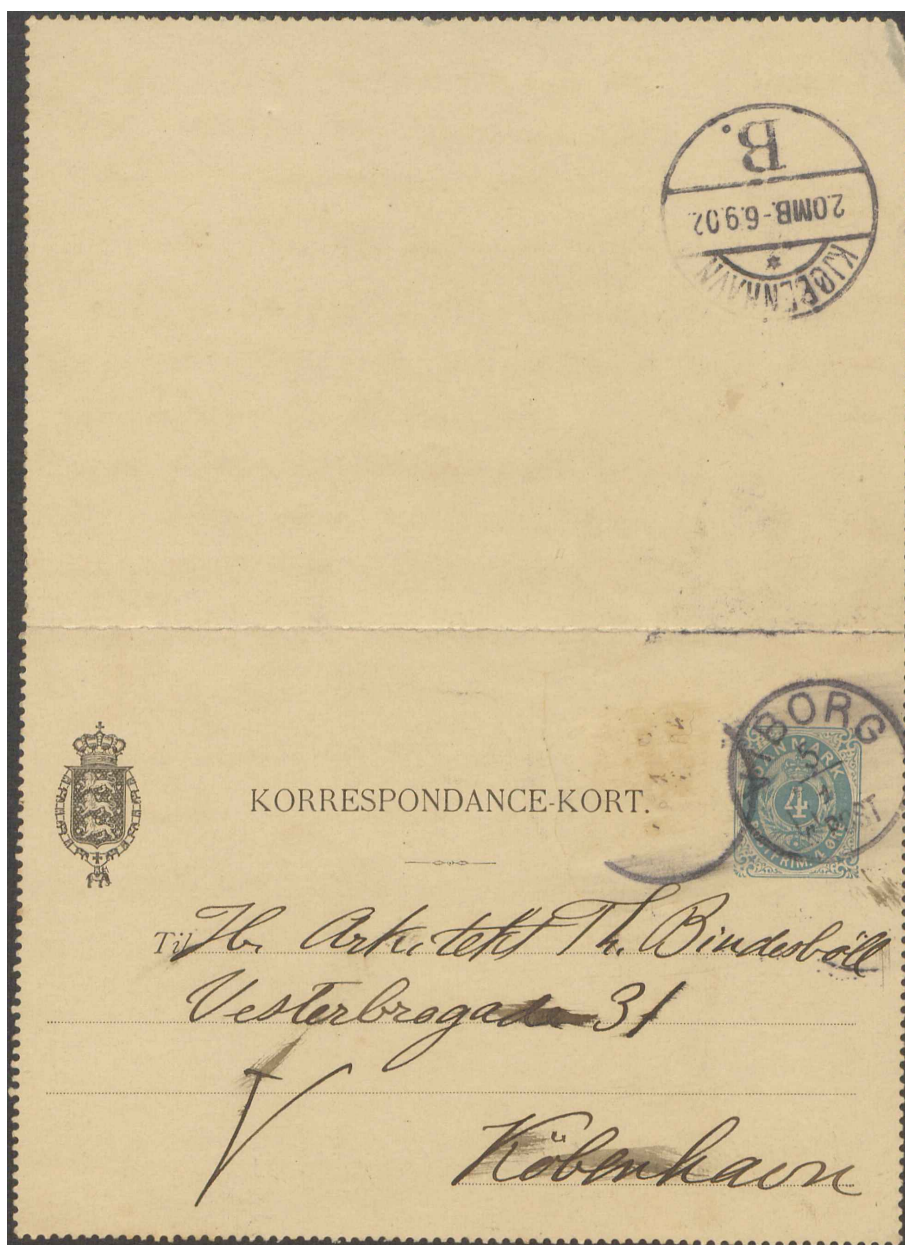 B.
2.OMB.-6.9.02.
KJØBENHAVN
BORG
5
DANMARK
4
KORRESPONDANCE-KORT.
Til Hr. Arkitekt Th. Bindesböll
Vesterbrogade 31
V
Köbenhavn